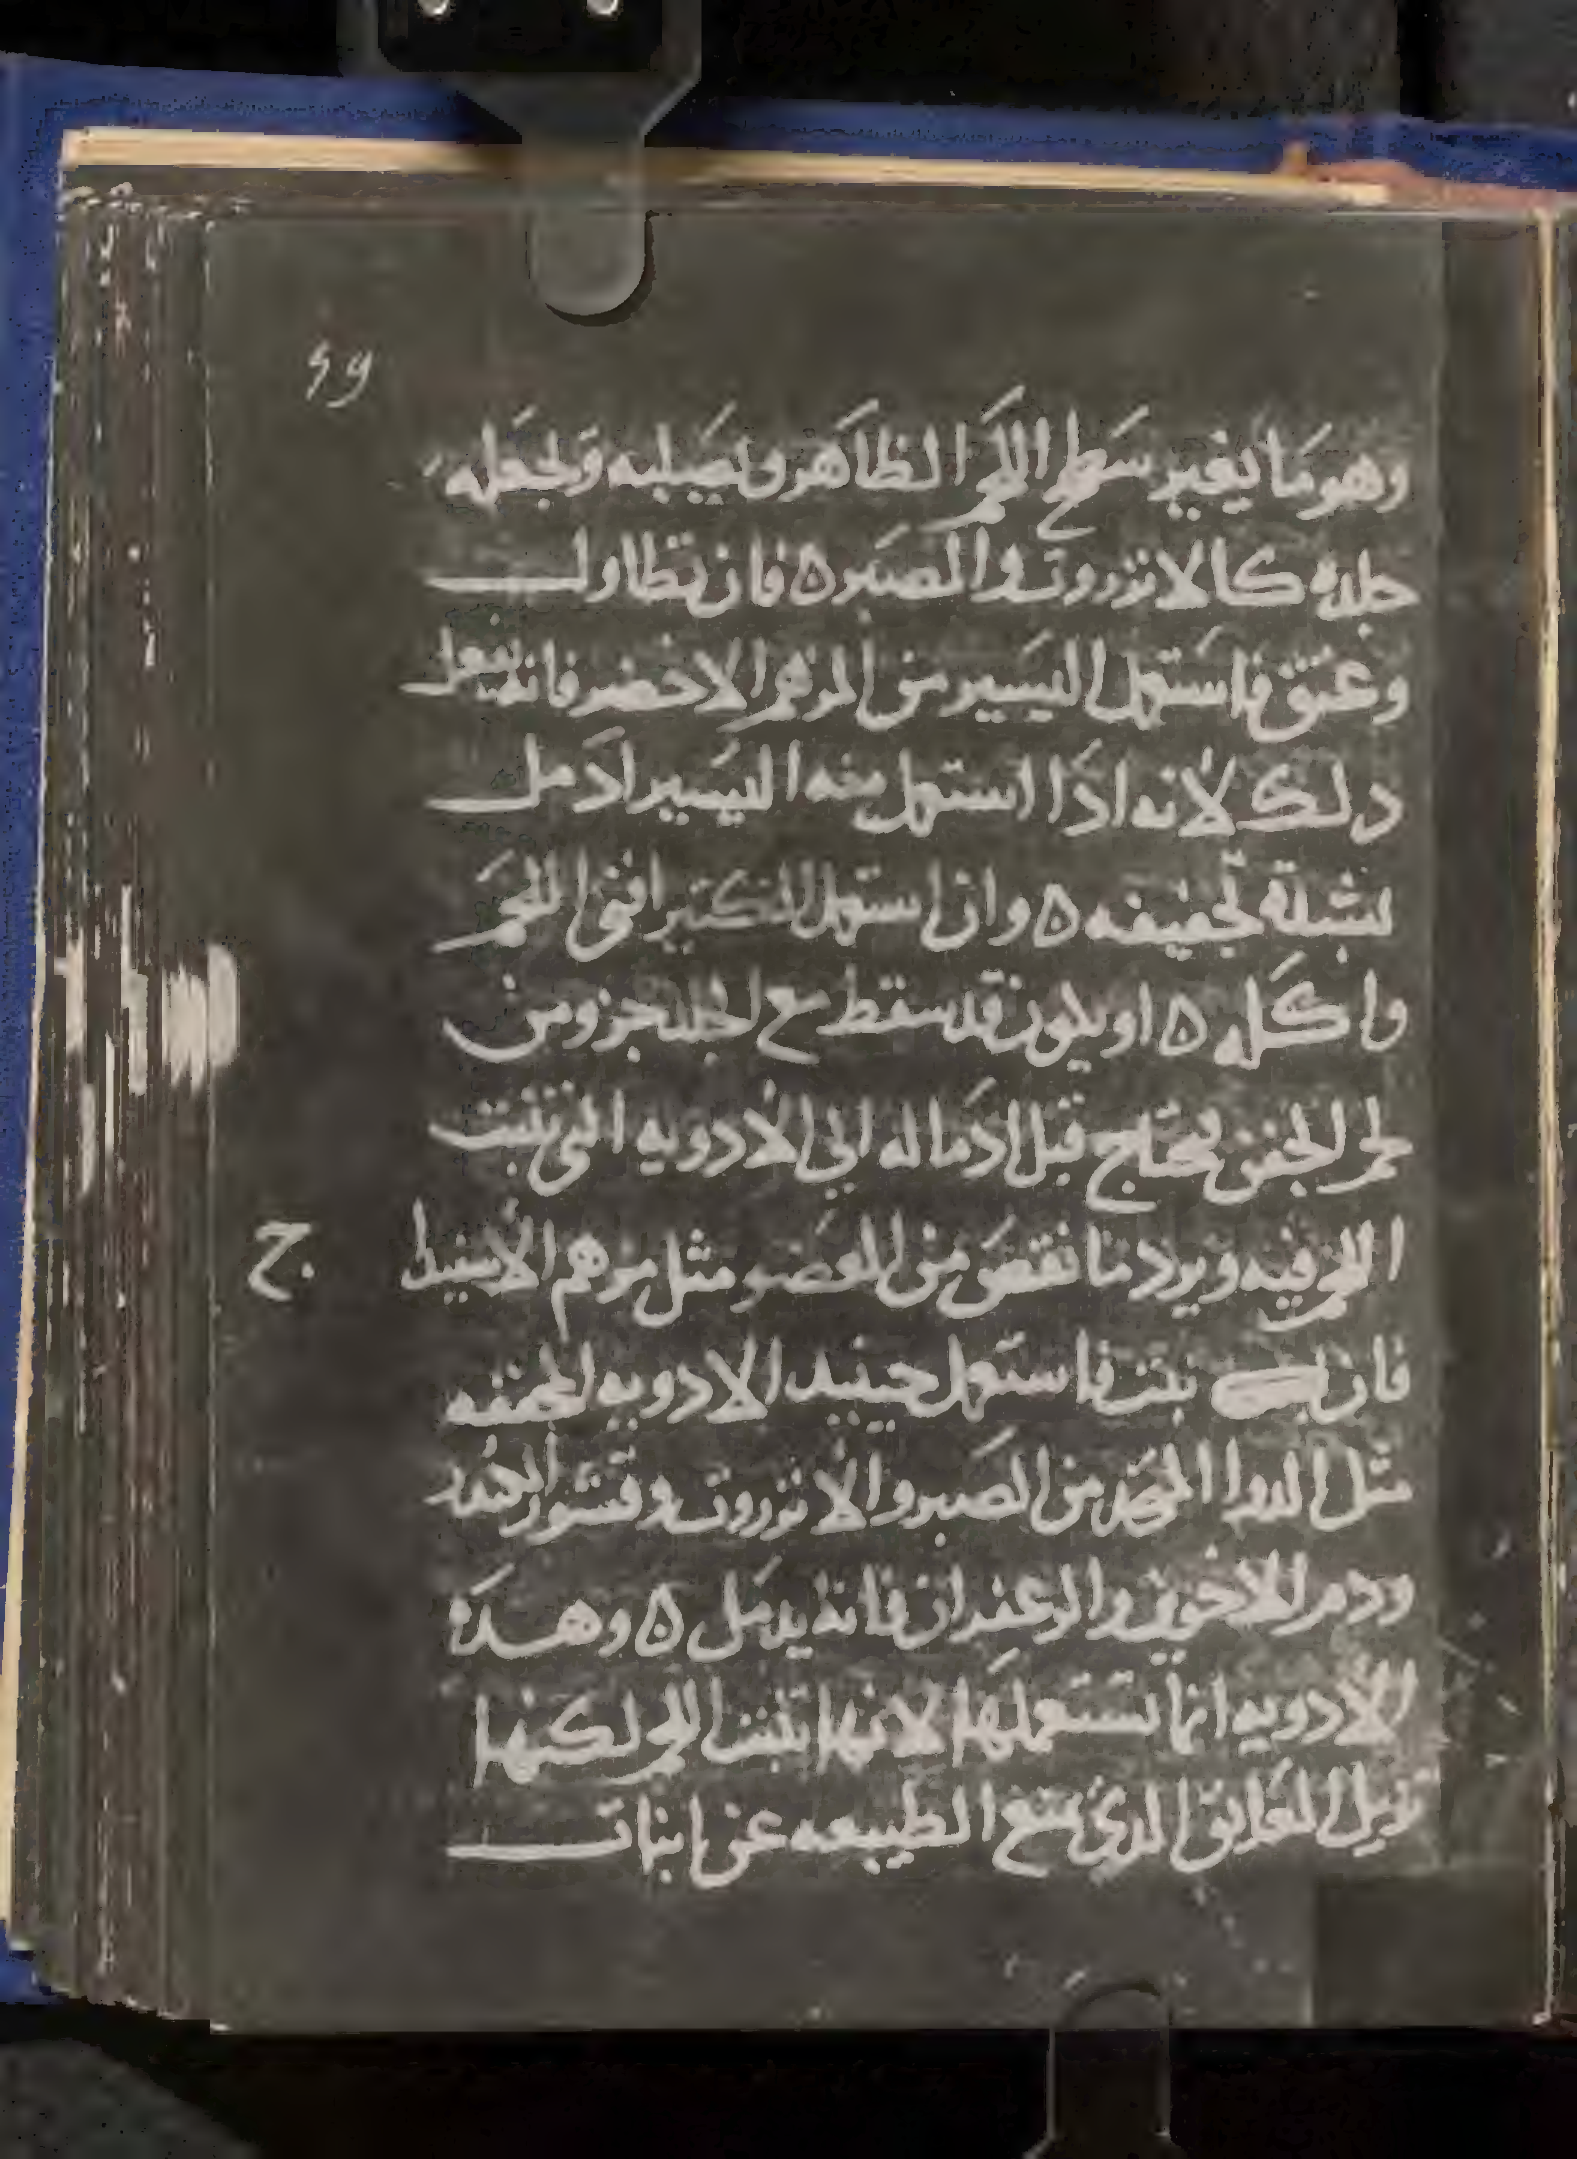 ٤٩
وهو ما يغير سطح اللحم الظاهر ويصلبه ويجعله
جلده كالانزروت والصبر ه فان تطاول
وعتق فاستعمل اليسير من المرهم الاخضر فانه يفعل
دلك لانه ادا استعمل منه اليسير ادمل
بشدة تجفيفه ه وان استعمل الكثير افنى اللحم
واكله ه او يكون قد سقط مع الجلد جزو من
لحم الجفن يحتاج قبل ادماله الى الادويه التى تنبت
اللحم فيه ويرد ما نقص من العضو مثل مرهم الابيض
ح
فان نبت فاستعمل حينيد الادويه المجففه
مثل الدوا المتخد من الصبر والانزروت وقشور الكندر
ودم الاخوين والزعفران فانه يدمل ه وهده
الادويه انما تستعملها لانها تنبت اللحم لكنها
تزيل العايق الدي يمنع الطبيعه عن انبات